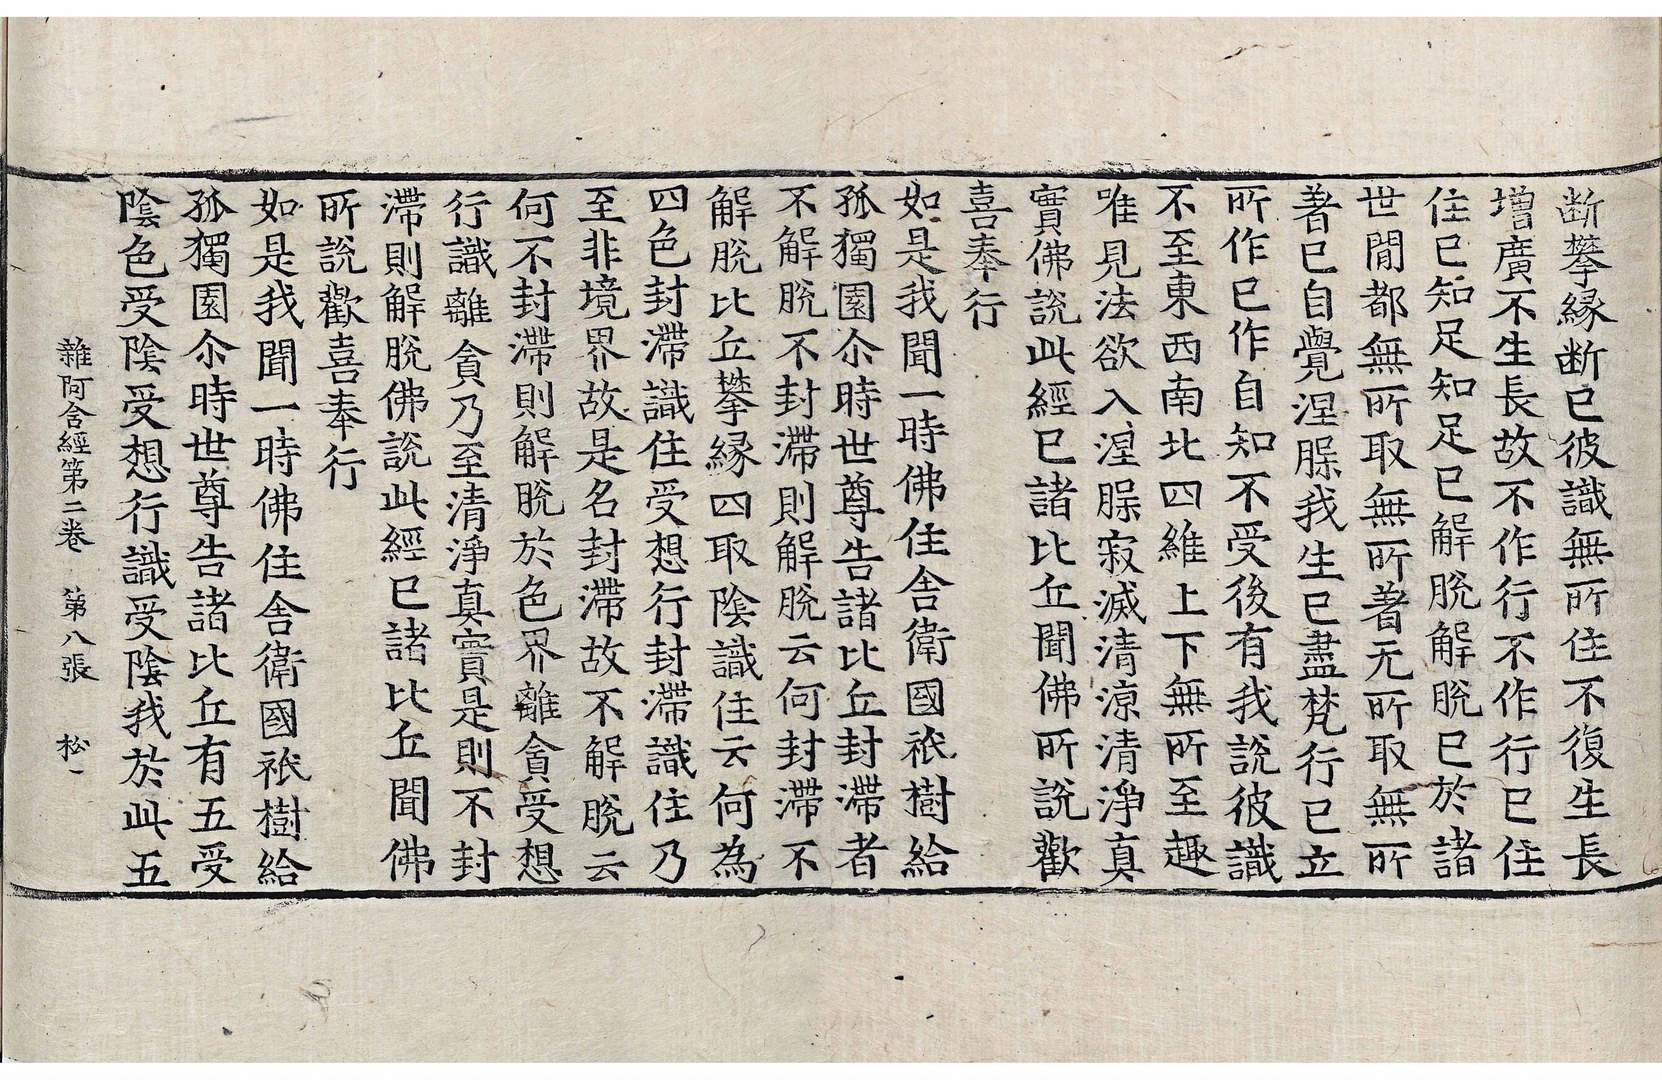 断攀縁断已彼識無所住不復生長
增廣不生長故不作行不作行已住
住已知足知足已解脫解脫已於諸
世閒都無所取無所著无所取無所
著已自覺涅脲我生已盡梵行已立
所作已作自知不受後有我說彼識
不至東西南北四維上下無所至趣
唯見法欲入涅脲寂滅清涼清淨真
實佛說此經已諸比丘聞佛所說歡
喜奉行
如是我聞一時佛住舍衛國祇樹給
孤獨園尒時世尊告諸比丘封滯者
不解脫不封滯則解脫云何封滯不
解脫比丘攀縁四取陰識住云何為
四色封滯識住受想行封滯識住乃
至非境界故是名封滯故不解脫云
何不封滯則解脫於色界離貪受想
行識離貪乃至清淨真實是則不封
滯則解脫佛說此經已諸比丘聞佛
所說歡喜奉行
如是我聞一時佛住舍衛國祇樹給
孤獨園尒時世尊告諸比丘有五受
陰色受陰受想行識受陰我於此五
雜阿含經第二卷 第八張 松